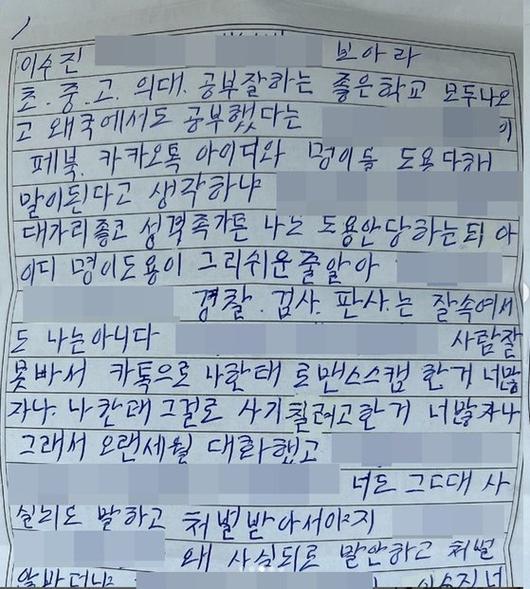 이수진 보아라
초.중.고.의대.공부잘하는 좋은학교 모두나오
고 왜국에서도 공부했다는 이
페북.카카오톡 아이디와 명이들 도용당해
말이된다고 생각하냐
대가리좋고 성격족가튼 나는 도용안당하는되 아
이디 명이도용이 그리쉬운줄알아
경찰.검사.판사는 잘속여서
도 나는아니다 사람잘
못바서 카톡으로 나한태 로맨스스캠 한거 너맞
자나.나한대 그걸로 사기칠려고한거 너맞자나
그래서 오랜세월 대화했고
너는 그대대 사
실리도 말하고 처벌받아서야지
왜 사심되로 말안하고 처벌
이수진너